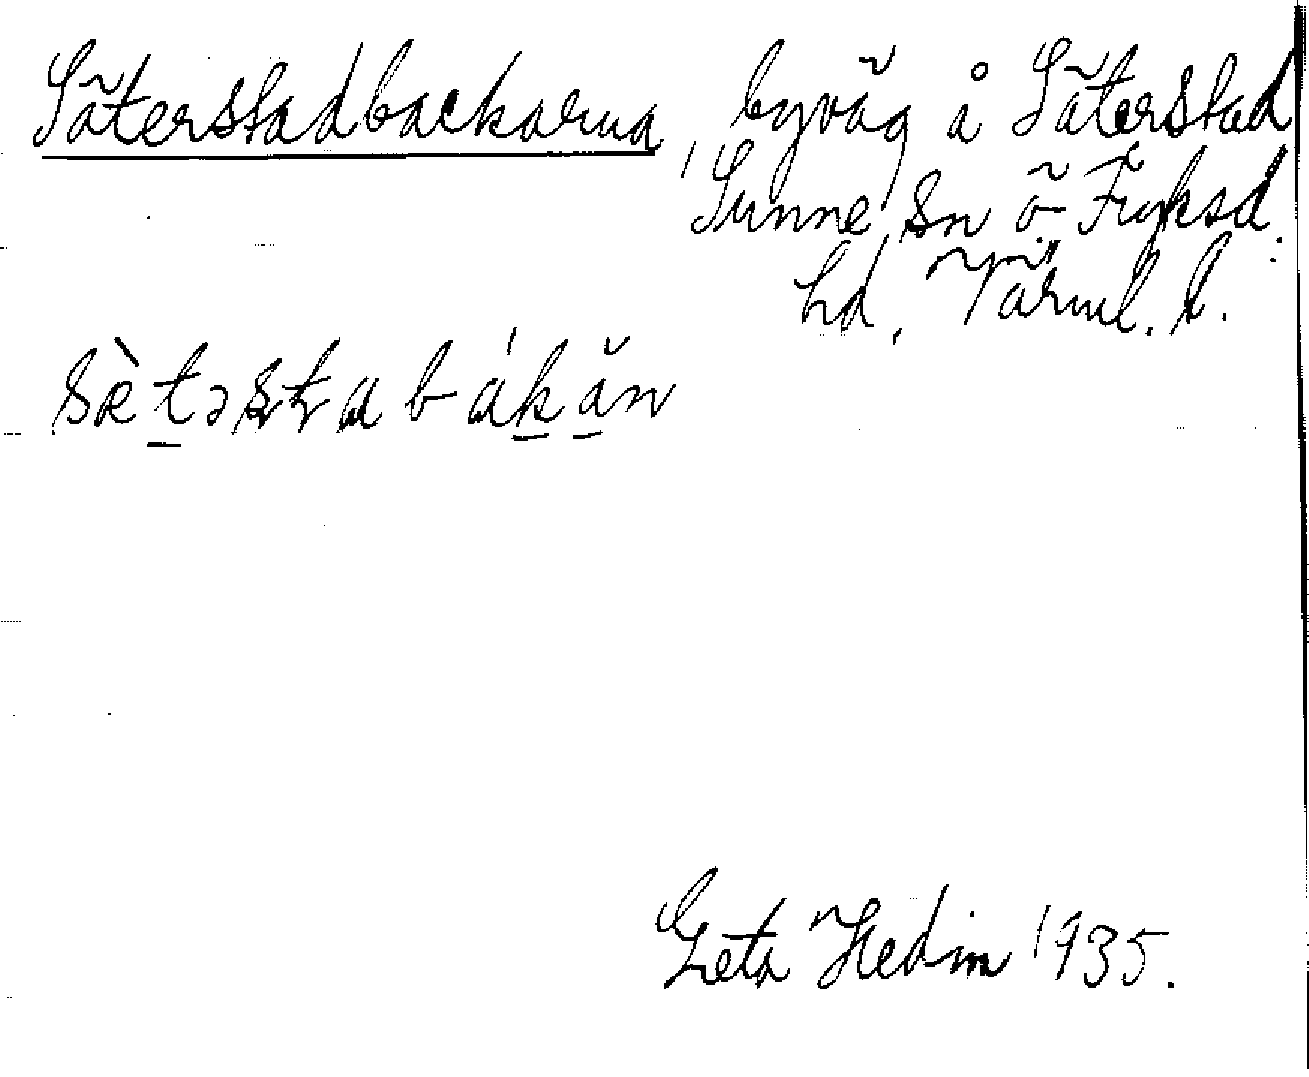 Säterstadbackarna, byväg å Säterstad
Sunne sn Ö Fryksd.
hd, Värml. l.
sè̀təsṭabákăn
Greta Hedin 1935.